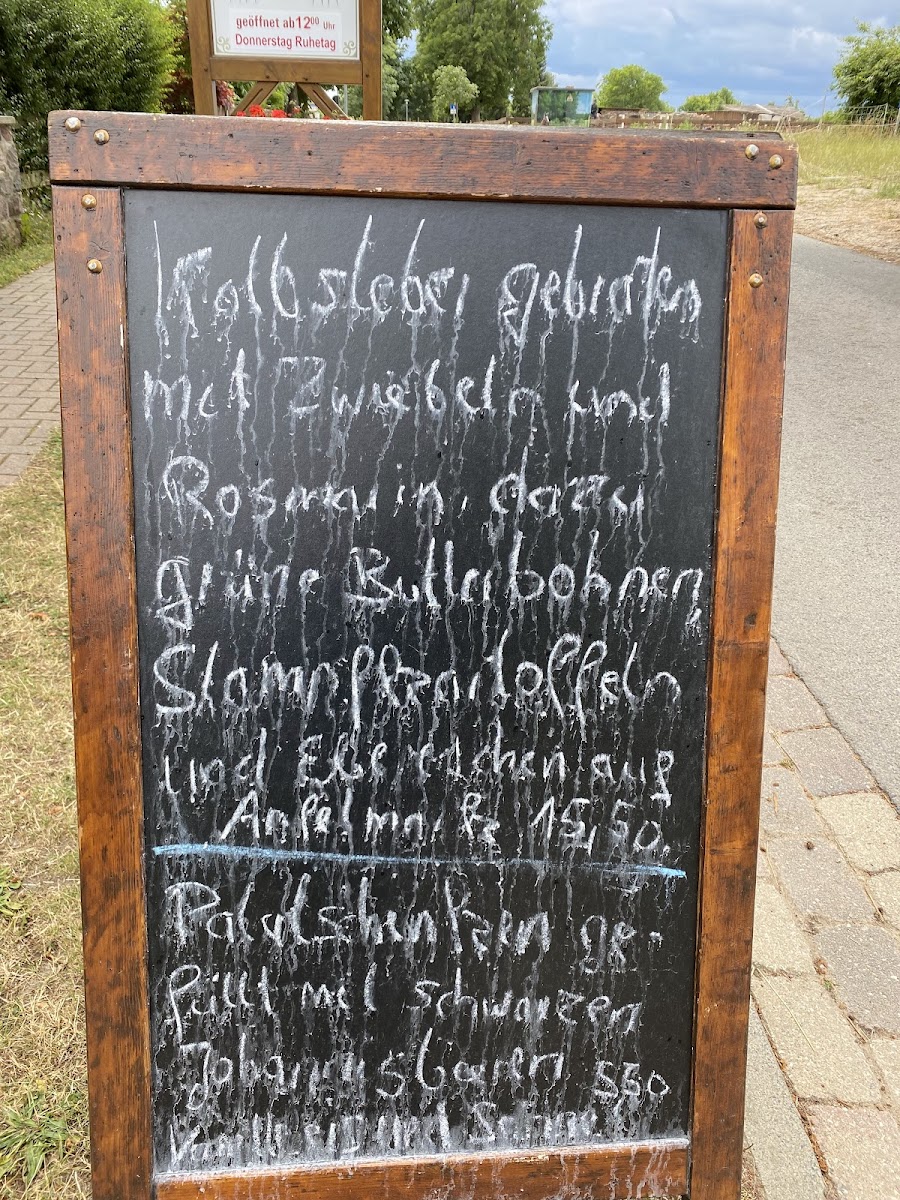 geöffnet ab 12⁰⁰ Uhr
Donnerstag Ruhetag
Kalbsleber gebraten
mit Zwiebeln und
Rosmarin, dazu
grüne Butterbohnen,
Stampfkartoffeln
und Ebereschen aug
Apfelmn, 15,50.
Palatschinken ge-
füllt mit schwarzen
Johannisbeeren 550
Vanilleeis und Sahne